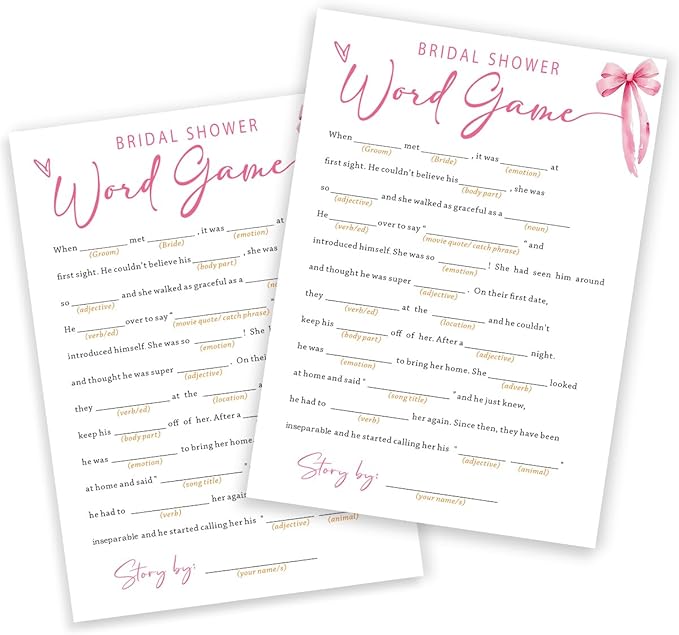 BRIDAL SHOWER
Word Game
When ________ met ________, it was ________ at
(Groom) (Bride) (emotion)
first sight. He couldn't believe his ________, she was
(body part)
so ________ and she walked as graceful as a ________
(adjective)
He ________ over to say " ________
(verb/ed) (movie quote/ catch phrase)
introduced himself. She was so ________ ! She h
(emotion)
and thought he was super ________. On their
(adjective)
they ________ at the ________
(verb/ed) (location)
keep his ________ off of her. After a
(body part)
he was ________ to bring her home.
(emotion)
at home and said " ________
(song title)
he had to ________ her again
(verb)
inseparable and he started calling her his " ________ ________
(adjective) (animal)
Story by: ________
(your name/s)
BRIDAL SHOWER
Word Game
When ________ met ________, it was ________ at
(Groom) (Bride) (emotion)
first sight. He couldn't believe his ________, she was
(body part)
so ________ and she walked as graceful as a ________
(adjective) (noun)
He ________ over to say " ________ " and
(verb/ed) (movie quote/ catch phrase)
introduced himself. She was so ________ ! She had seen him around
(emotion)
and thought he was super ________. On their first date,
(adjective)
they ________ at the ________ and he couldn't
(verb/ed) (location)
keep his ________ off of her. After a ________ night.
(body part) (adjective)
he was ________ to bring her home. She ________ looked
(emotion) (adverb)
at home and said " ________ " and he just knew,
(song title)
he had to ________ her again. Since then, they have been
(verb)
inseparable and he started calling her his " ________ ________ "
(adjective) (animal)
Story by: ________
(your name/s)